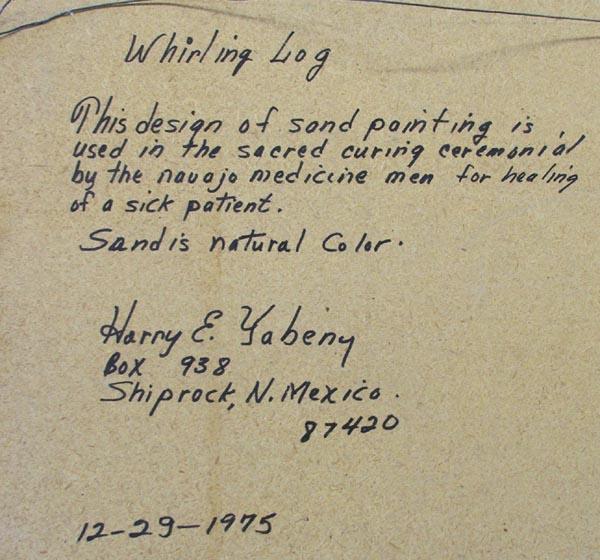 Whirling Log
This design of sand painting is
used in the sacred curing ceremonial
by the navajo medicine men for healing
of a sick patient.
Sand is natural Color.
Harry E. Yabeny
Box 938
Shiprock, N. Mexico.
87420
12-29-1975